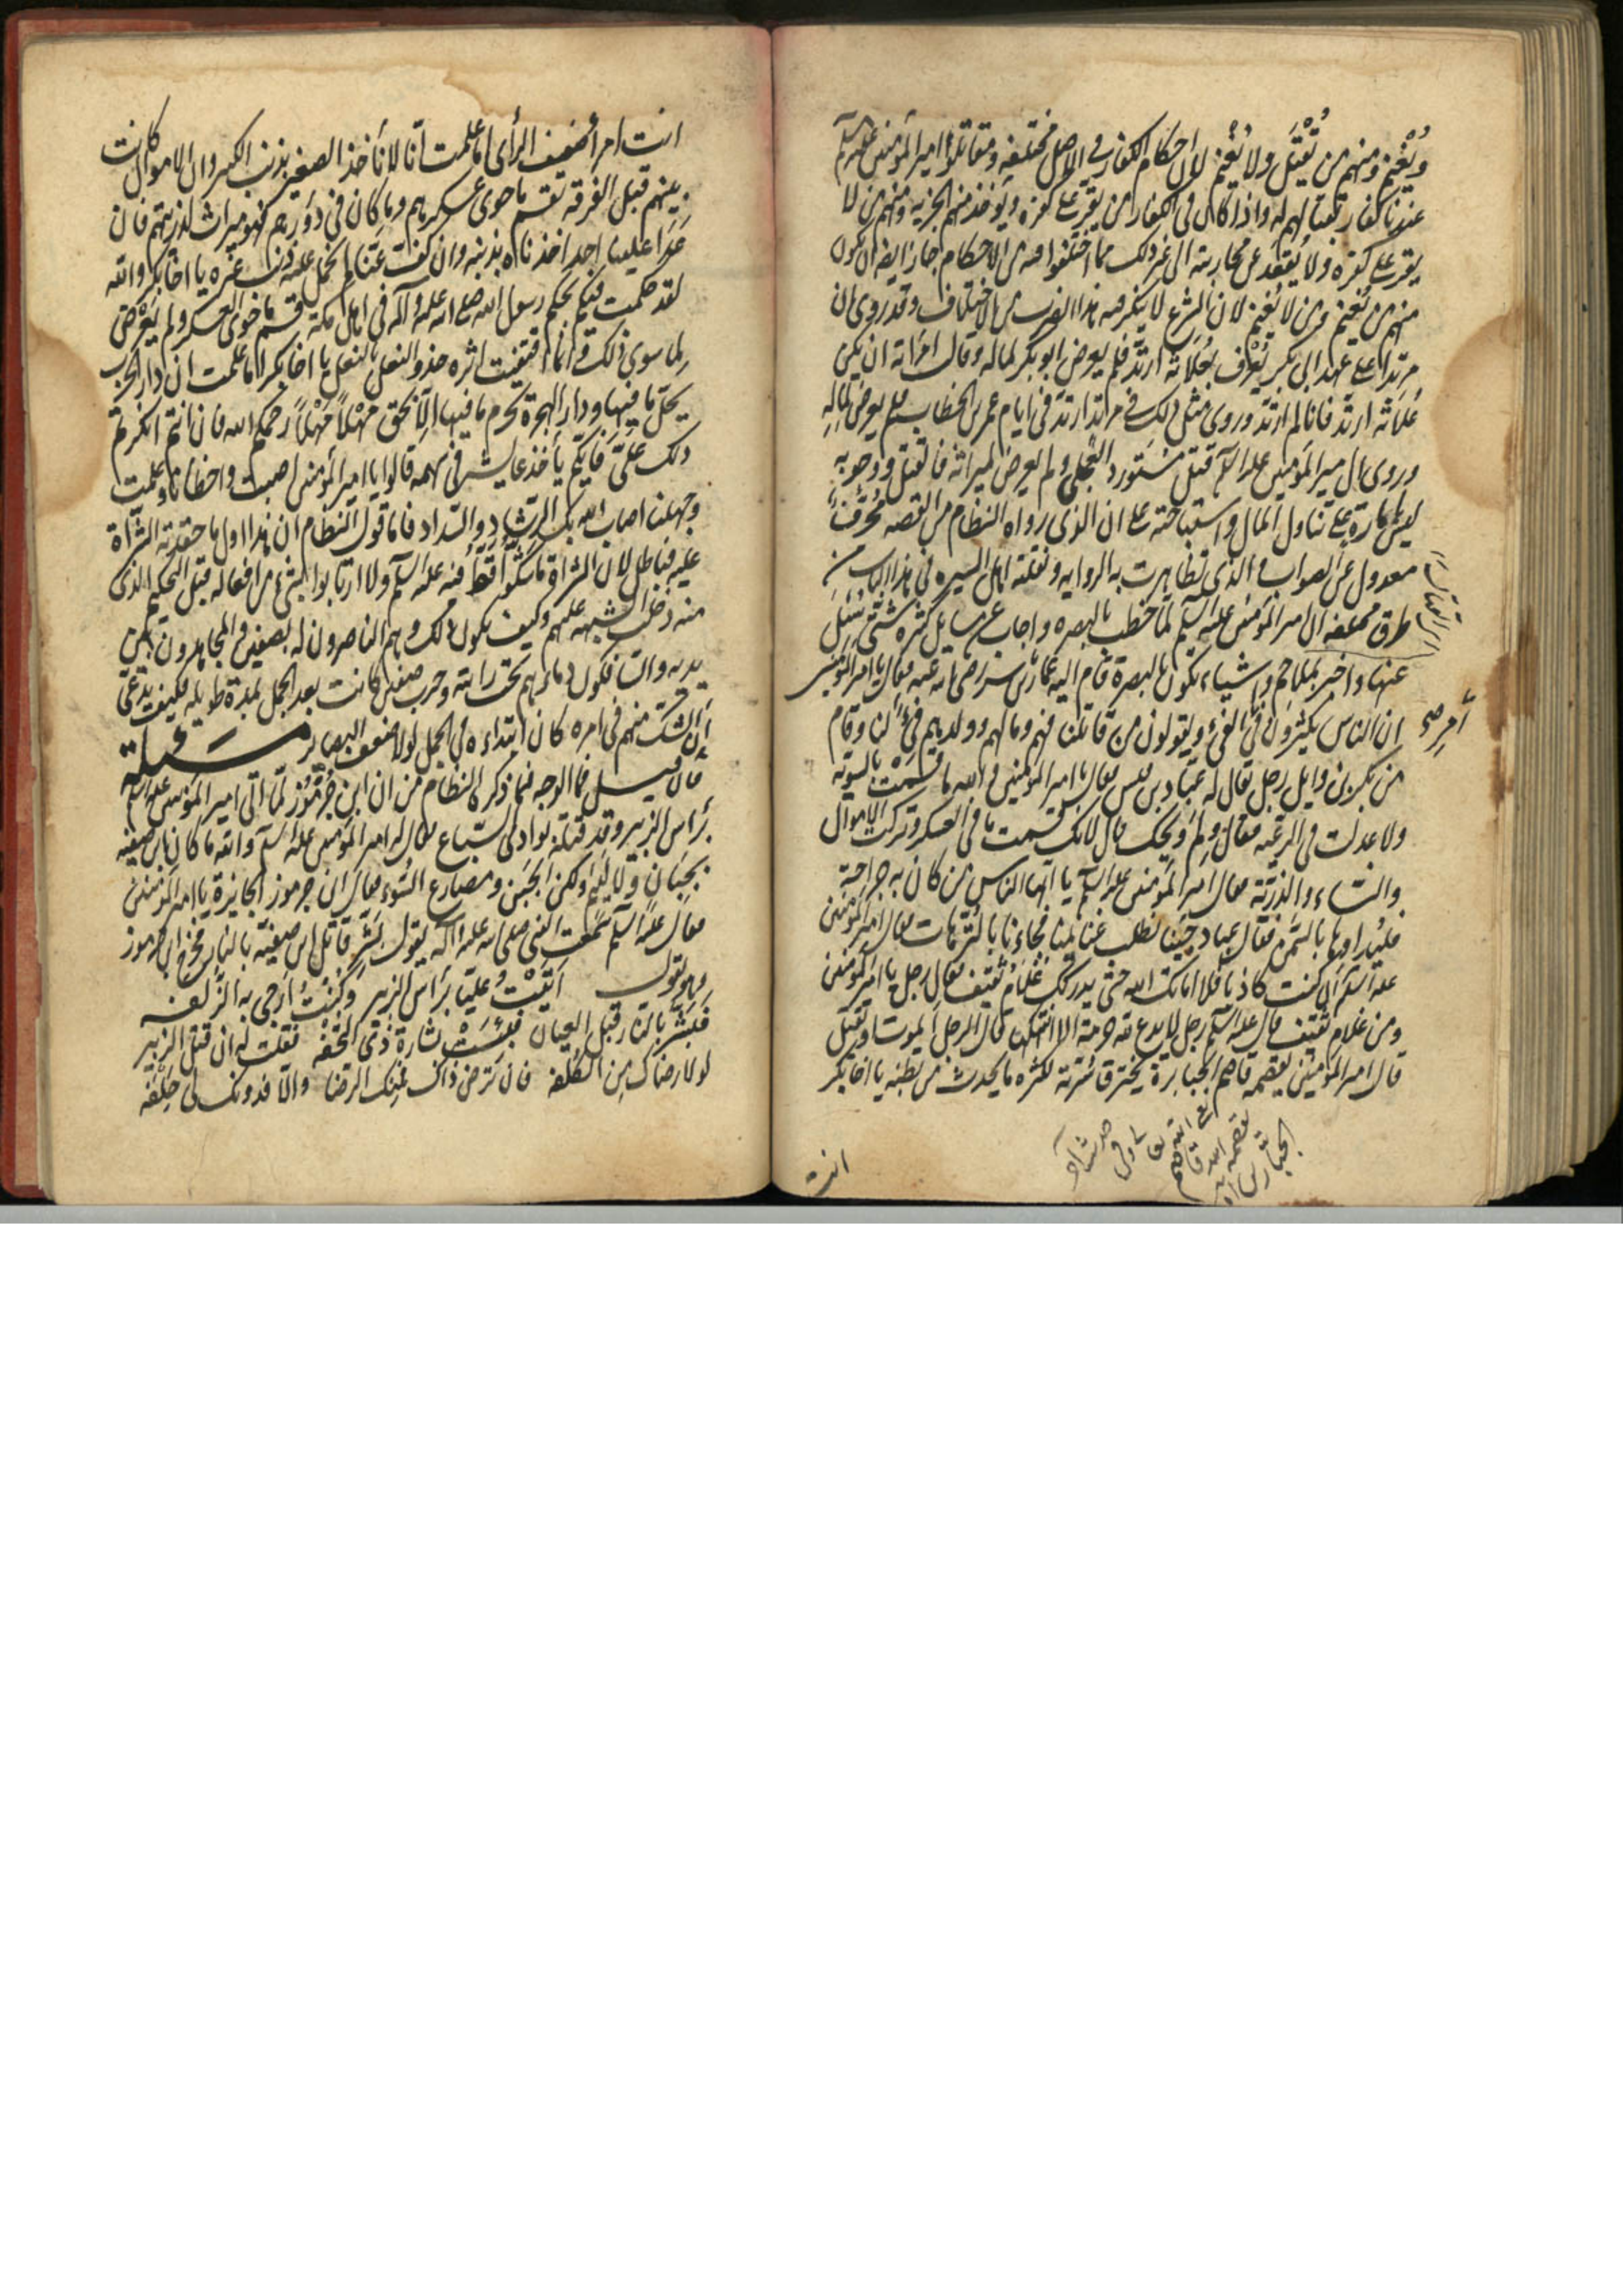 ويُغنم ومنهم من يُقْتَل ولا يُغنم لان احكام الكفار في الاصل مختلفه ومقاتلوا امير المؤمنين عليه السلم
عندنا كفار بقتالهم له واذا كان في الكفار من يقر على كفره ويؤخذ منهم الجزيه ومنهم من لا
يقر على كفره ولا يُقعَد عن محاربته الى غير ذلك مما اختلفوا فيه من الاحكام جاز ايضا ان يكون
منهم من يُغنم ومن لا يُغنم لان الشرع لا ينكر فيه هذا الضرب من الاختلاف وقد روى ان
مرتدا على عهد ابى بكر يُعْرف بعُلاثه ارتد فلم يعرض ابو بكر لماله وقالت امراته ان يكن
عُلاثه ارتد فانا لم ارتد وروى مثل ذلك في مرتد ارتد في ايام عمر بن الخطاب فلم يعرض لماله
وروى ان امير المؤمنين عليه السلم قتل مستورد العجلى ولم يعرض لميراثه فالقتل ووجوبه
ليس بامارة على تناول المال واستباحته على ان الذى رواه النظام من القصه محرف
معدول عن الصواب والذى تظاهرت به الروايه ونقلته اهل السيره في هذا الباب من
طرق مختلفه ان امير المؤمنين عليه السلم لما خطب بالبصره واجاب عن مسايل كثيره شتى سُئل
عنها واخبر بملاحم واشياء تكون بالبصرة قام اليه عمار بن ياسر رضى الله عنه فقال يا امير المؤمنين
ان الناس يكثرون في الفىء ويقولون من قاتلنا فهم ومالهم وولدهم فىء لنا وقام
من بكر بن وايل رجل يقال له عباد بن قيس فقال يا امير المؤمنين والله ما قسمت بالسويه
ولا عدلت في الرعيه فقال ولم ويحك قال لانك قسمت ما في العسكر وتركت الاموال
والنساء والذريّة فقال امير المؤمنين عليه السلم يا ايها الناس من كان به جراحة
فليداوها بالسمن فقال عباد جئنا نطلب غنايمنا فجاءنا بالترهات فقال امير المؤمنين
عليه السلم ان كنت كاذبا فلا اماتك الله حتى يدركك غلام ثقيف فقال رجل يا امير المؤمنين
ومن غلام ثقيف قال عليه السلم رجل لا يدع لله حرمة الا انتهكها قال الرجل ايموت او يقتل
قال امير المؤمنين يقصمه قاصم الجبابرة يحترق لكثرة ما يحدث من بطنه يا اخا بكر
انت
انت امرؤ ضعيف الرأى اما علمت انا لا نأخذ الصغير بذنب الكبير وان الاموال كانت
بينهم قبل الفرقه يقسم ما حوى عسكرهم وما كان في دورهم فهو ميراث لذريتهم فان
عدا علينا احد اخذناه بذنبه وان كف عنّا لم نحمل عليه ذنب غيره يا اخا بكر والله
لقد حكمت فيكم بحكم رسول الله صلى الله عليه وآله في اهل مكة قسم ما حوى العسكر ولم يعرض
لما سوى ذلك وانما اقتفيت اثره حذو النعل بالنعل يا اخا بكر اما علمت ان دار الحرب
يحل ما فيها ودار الهجرة يحرم ما فيها الا بحق مهلًا مهلًا رحمكم الله فان انتم انكرتم
ذلك علىّ فايّكم يأخذ عايشه في سهمه قالوا يا امير المؤمنين اصبت واخطانا وعلمت
وجهلنا اصاب الله بك الرشاد والسداد فاما قول النظام ان هذا اول ما حقدته الشراة
عليه فباطل لان الشراة ما شكّوا قط فيه عليه السلم ولا ارتابوا بشىء من افعاله قبل التحكيم الذى
منه دخلت الشبهه عليهم وكيف يكون ذلك وهم الناصرون له بصفين والمجاهدون بين
يديه والسافكون دماءهم تحت رايته وحرب صفين كانت بعد الجمل بمدة طويله فكيف يدعى
ان الشك منهم في امره كان ابتداءه في الجمل لولا ضعف البصاير مسئلة
فان قيل فما الوجه فيما ذكره النظام من ان ابن جرموز لما اتى امير المؤمنين عليه السلم
برأس الزبير وقد قتله بوادى السباع فقال له امير المؤمنين عليه السلم والله ما كان ابن صفيه
بجبان ولا لئيم ولكن الحَين ومصارع السّوء فقال ابن جرموز الجايزة يا امير المؤمنين
فقال عليه السلم سمعت النبى صلى الله عليه وآله يقول بشر قاتل ابن صفيّة بالنار فخرج ابن جرموز
وهو يقول اَتَيْتُ عليّا برأس الزبير وكنتُ ارجى به الزلفه
فبشّر بالنار قبل العيان فبئست بشارة ذى التحفه فقلت له ان قتل الزبير
لولا رضاك من الكُلفه فان ترض ذاك فمنك الرضا والا فدونك لى حِلْفَه